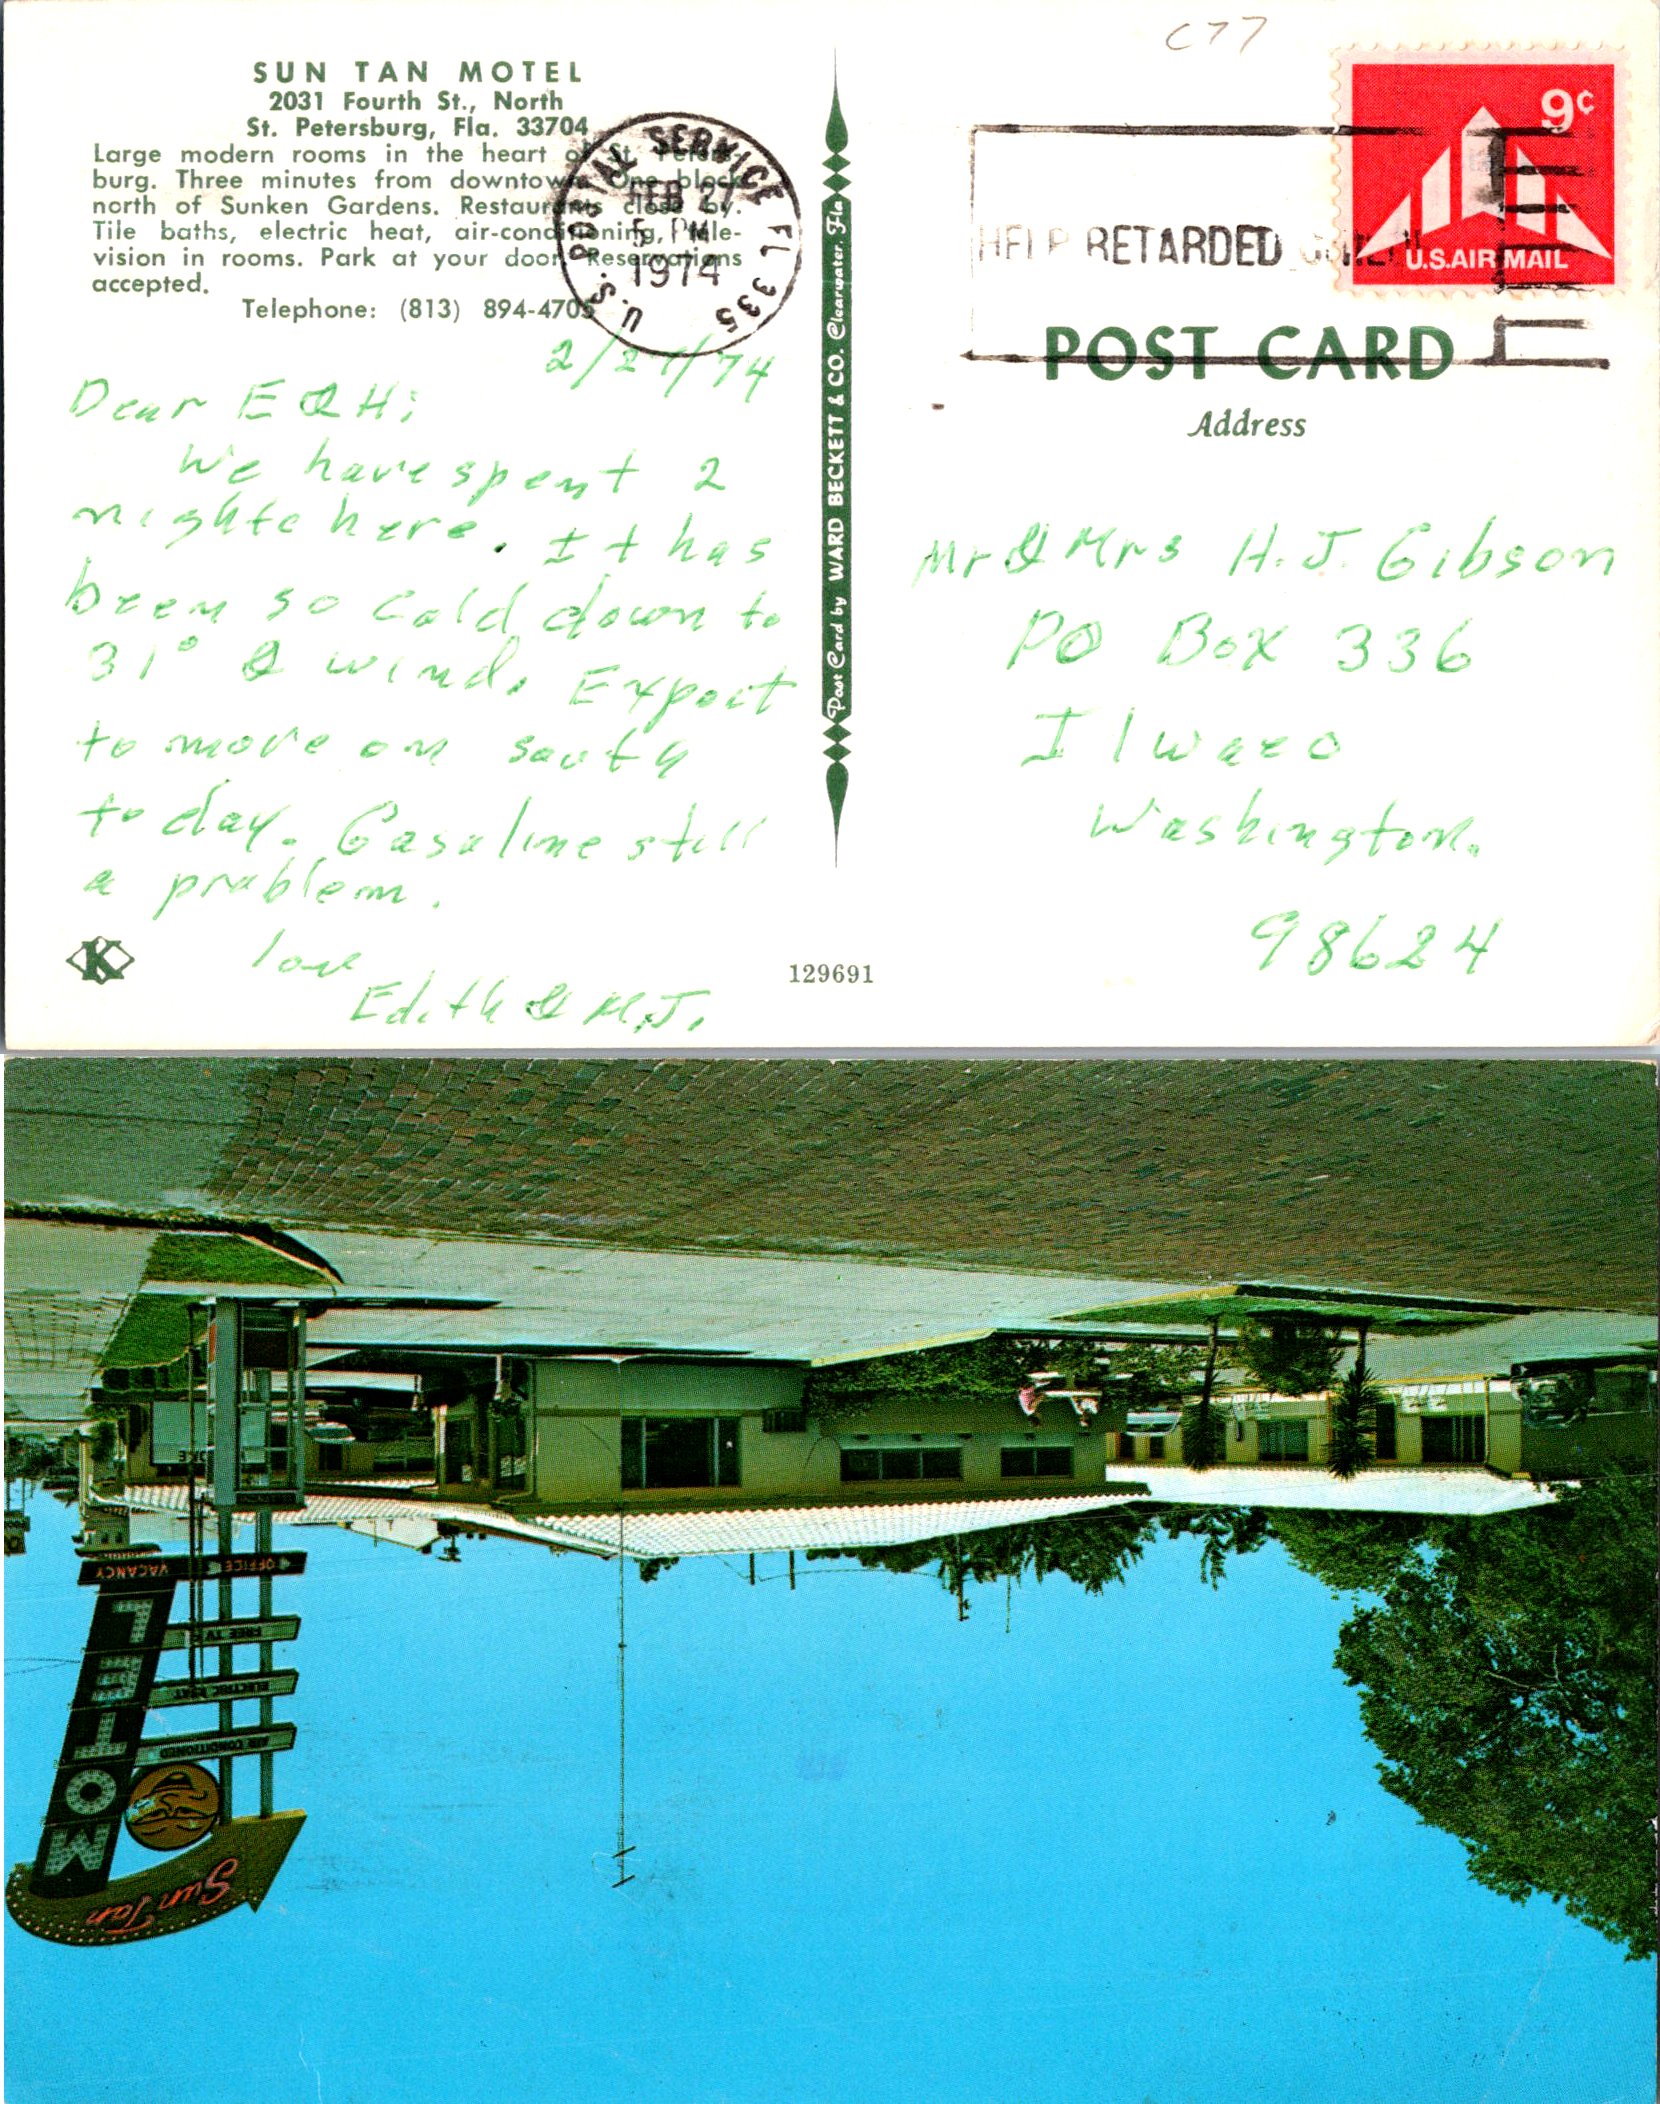 C77
SUN TAN MOTEL
2031 Fourth St., North
St. Petersburg, Fla. 33704
Large modern rooms in the heart of St. Peters-
burg. Three minutes from downtown. One block
north of Sunken Gardens. Restaurants close by.
Tile baths, electric heat, air-conditioning, Tele-
vision in rooms. Park at your door. Reservations
accepted.
Telephone: (813) 894-4705
U.S. POSTAL SERVICE FL 335
FEB 27
5 PM
1974
9¢
U.S. AIR MAIL
HELP RETARDED
POST CARD
Address
2/27/74
Dear E & H;
We have spent 2
nights here. It has
been so cold down to
31° & wind. Expect
to move on south
today. Gasoline still
a problem.
love
Edith & M.J.
Post Card by WARD BECKETT & CO. Clearwater, Fla.
Mr & Mrs H. J. Gibson
PO Box 336
Ilwaco
Washington.
98624
K
129691
Sun Tan
MOTEL
AIR CONDITIONED
ELECTRIC HEAT
FREE TV
OFFICE
VACANCY